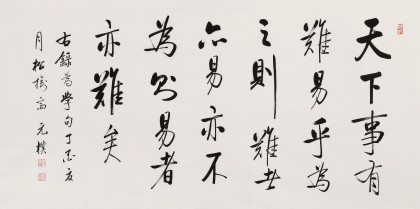 天下事有
難易乎為
之則難者
亦易亦不
為則易者
亦難矣
右錄為學句丁亥夏
月松 元樸